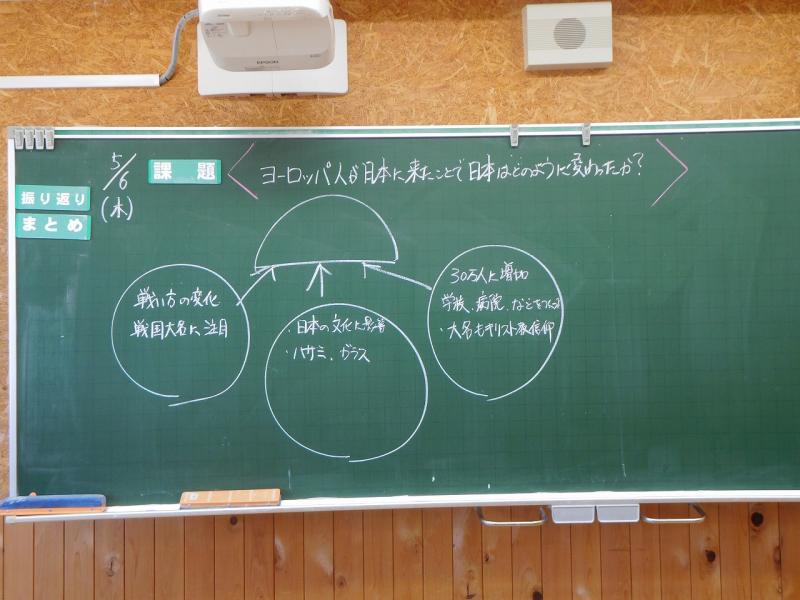 EPSON
5/6
(木)
課題
ヨーロッパ人が日本に来たことで日本はどのように変わったか?
振り返り
まとめ
戦い方の変化
戦国大名に注目
・日本の文化に影響
・ハサミ、ガラス
30万人に増加
学校、病院、などをつくる
・大名もキリスト教信仰